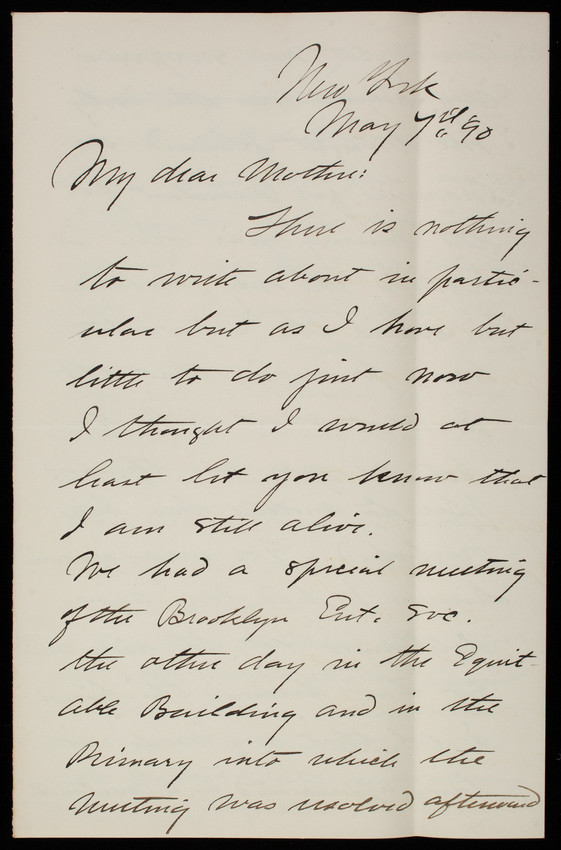 New York
May 7th 90
My dear Mother:
There is nothing
to write about in partic-
ular but as I have but
little to do just now
I thought I would at
least let you know that
I am still alive.
We had a special meeting
of the Brooklyn Ent. Soc.
the other day in the Equit-
able Building and in the
Primary into which the
meeting was resolved afterward